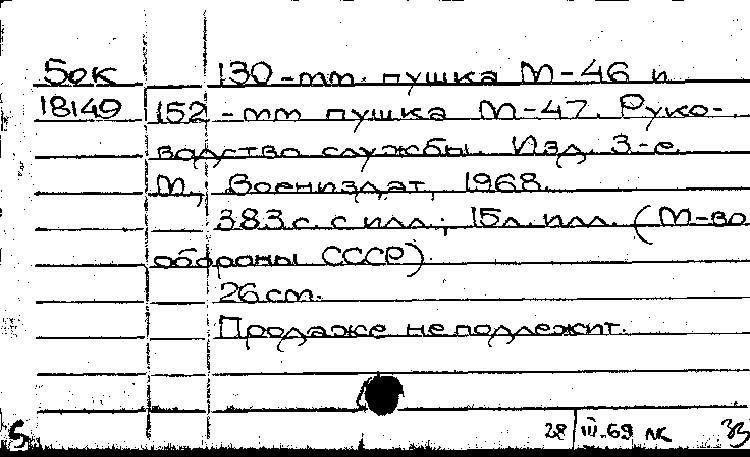 5ок 130-mm. пушка М-46 и
18149 152-mm пушка М-47. Руко-
водство службы. Изд. 3-е.
М., Воениздат, 1968.
383с. с илл.; 15л. илл. (М-во
обороны СССР).
26 cm.
Продаже не подлежит.
28/III-69 ЛК